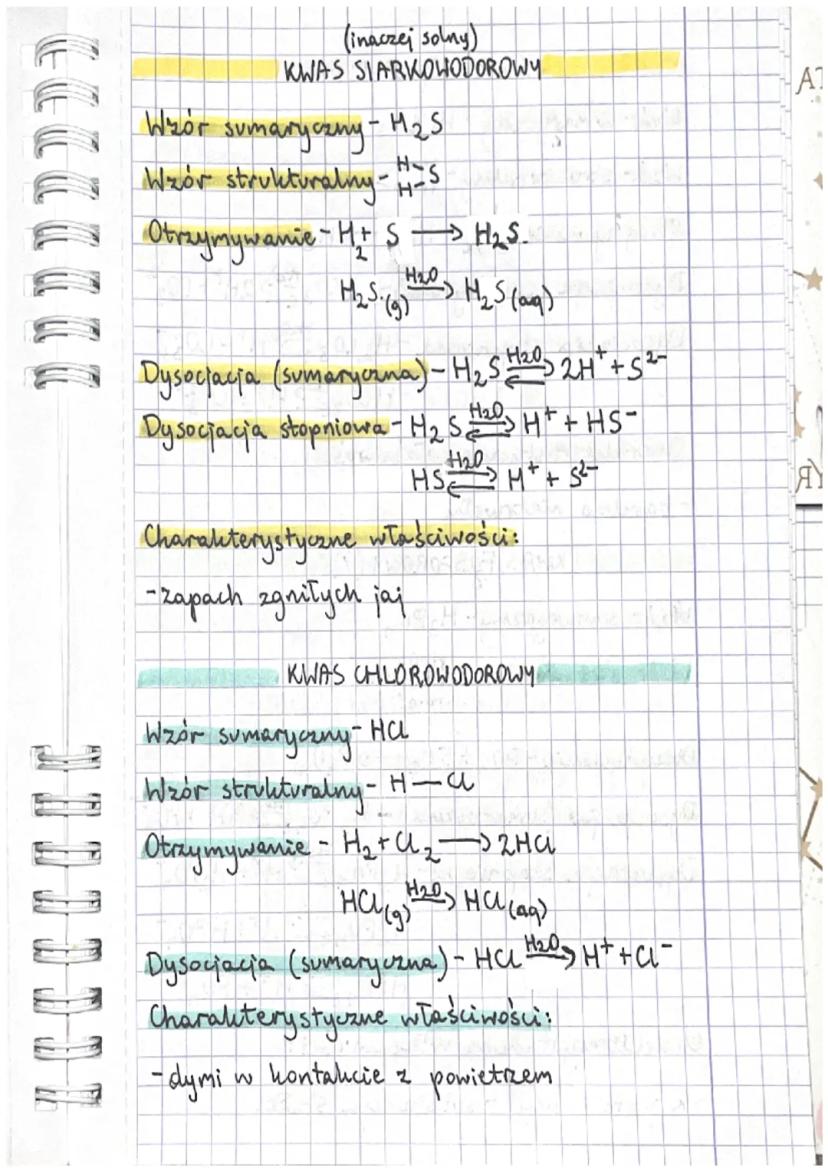 (inaczej solny)
KWAS SIARKOWODOROWY
Wzór sumaryczny - H₂S
Wzór strukturalny - H-S
H-
Otrzymywanie - H₂ + S → H₂S.
H₂S (g) H₂O → H₂S (aq)
Dysocjacja (sumaryczna) - H₂S H₂O ⇄ 2H⁺ + S²⁻
Dysocjacja stopniowa - H₂S H₂O ⇄ H⁺ + HS⁻
HS H₂O ⇄ H⁺ + S²⁻
Charakterystyczne właściwości:
- zapach zgniłych jaj
KWAS CHLOROWODOROWY
Wzór sumaryczny - HCl
Wzór strukturalny - H—Cl
Otrzymywanie - H₂ + Cl₂ → 2HCl
HCl (g) H₂O → HCl (aq)
Dysocjacja (sumaryczna) - HCl H₂O → H⁺ + Cl⁻
Charakterystyczne właściwości:
- dymi w kontakcie z powietrzem